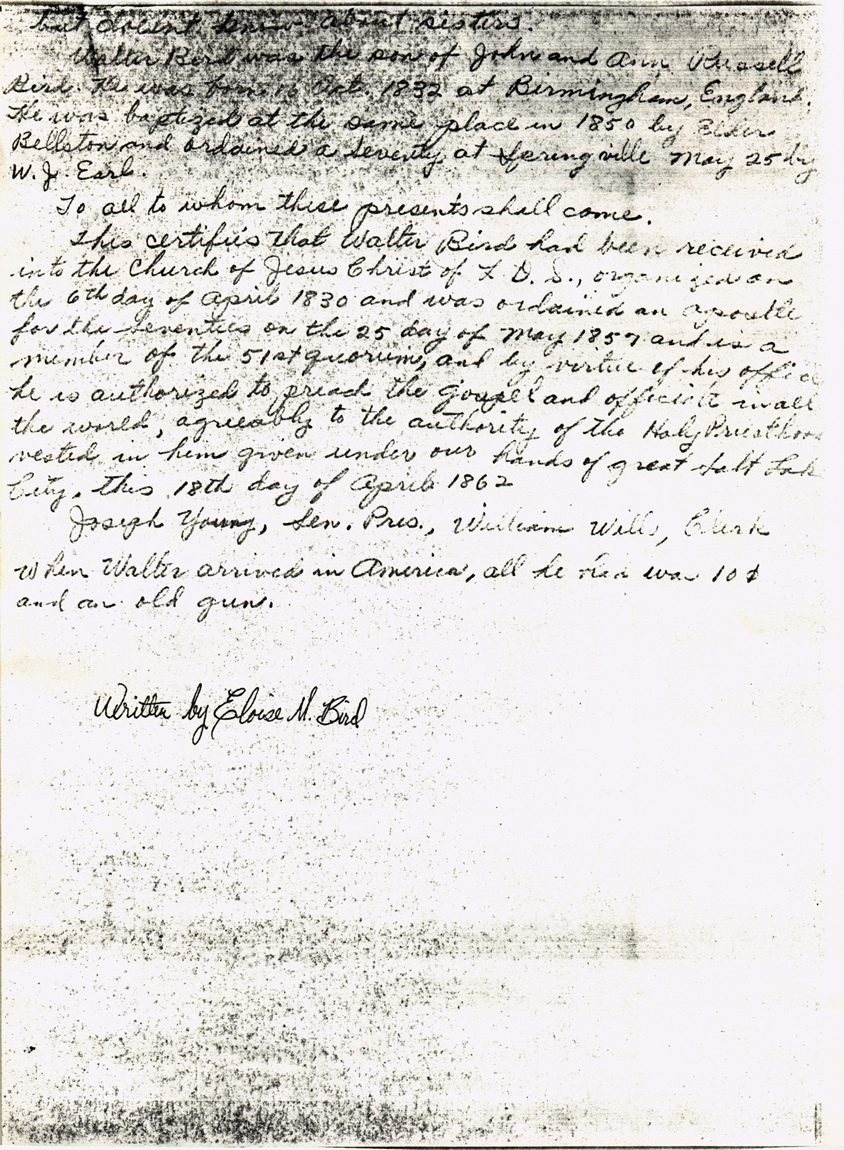 but doesnt know about sisters.
Walter Bird was the son of John and Ann Russell
Bird. He was born 16 Oct. 1832 at Birmingham, England.
He was baptized at the same place in 1850 by Elder
Bellston and ordained a Seventy at Springville May 25 by
W. J. Earl.
To all to whom these presents shall come.
This certifies that Walter Bird had been received
into the Church of Jesus Christ of L. D. S., organized on
the 6th day of April 1830 and was ordained an apostle
for the Seventies on the 25 day of May 1857 and is a
member of the 51st quorum, and by virtue of his office
he is authorized to preach the gospel and officiate in all
the world, agreeably to the authority of the Holy Priesthood
vested in him given under our hands of great Salt Lake
City, this 18th day of April 1862
Joseph Young, Sen. Pres., William Wills, Clerk
When Walter arrived in America, all he had was 10¢
and an old gun.
Written by Eloise M. Bird